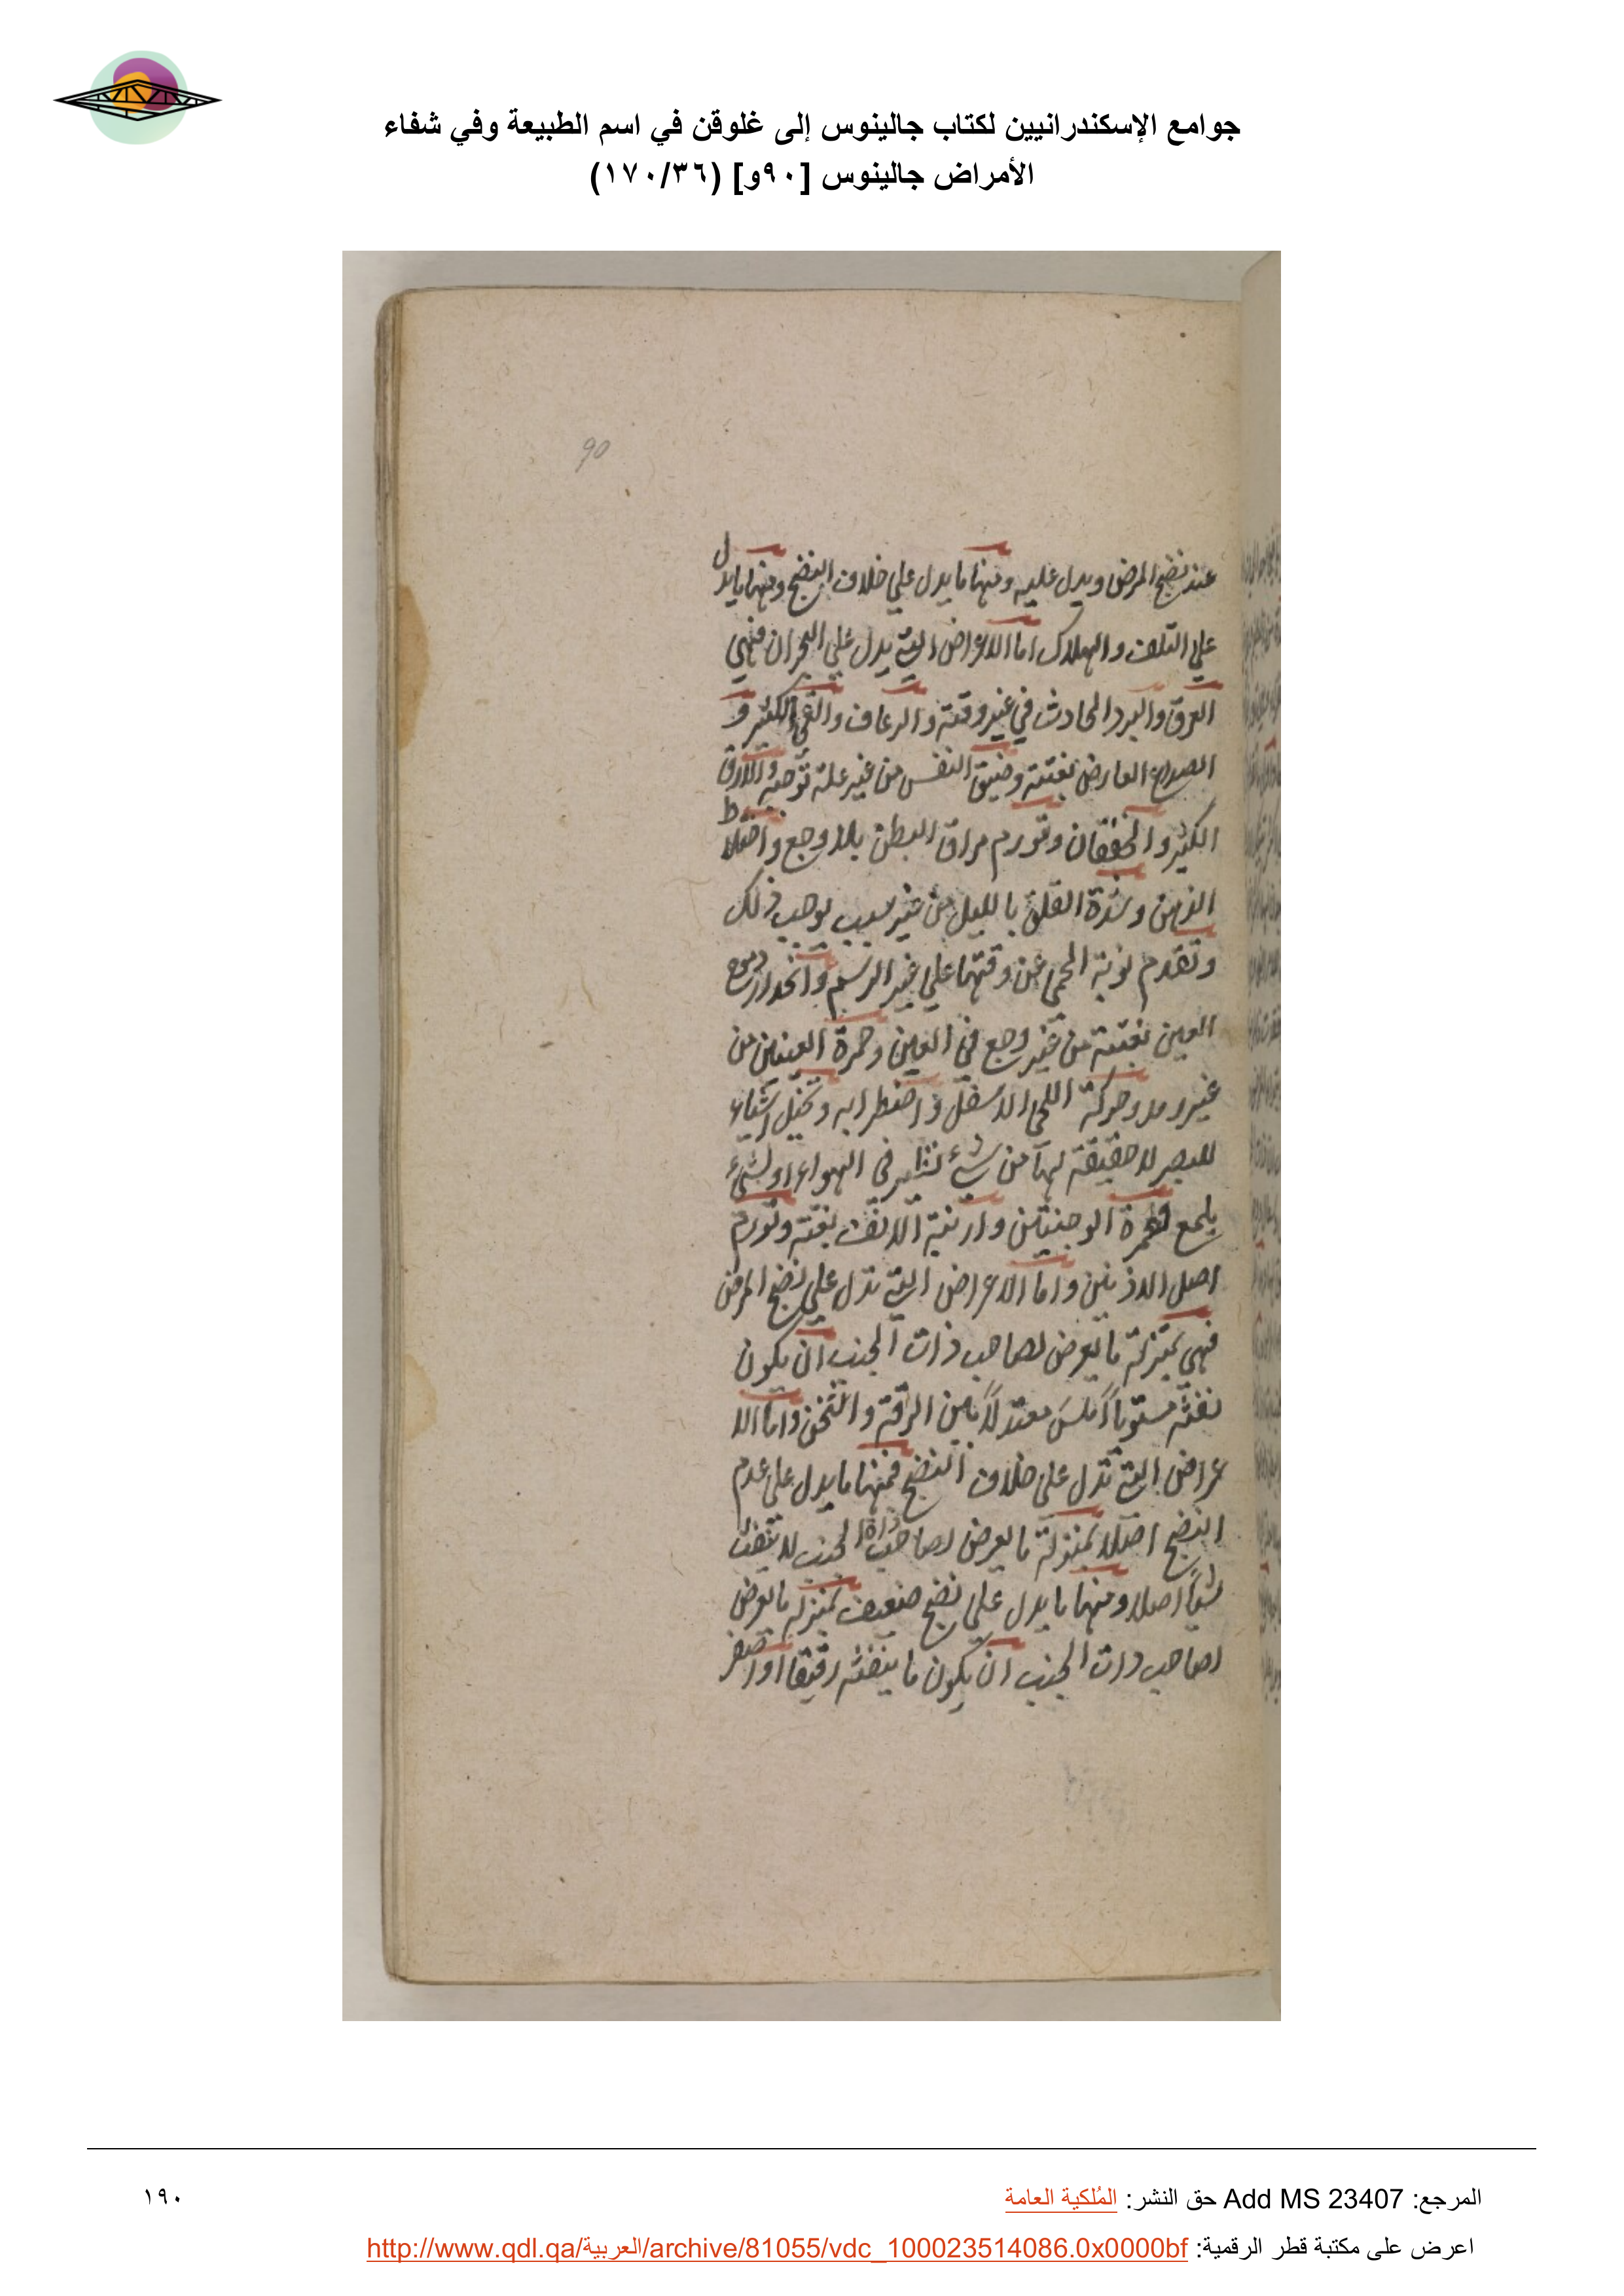 جوامع الإسكندرانيين لكتاب جالينوس إلى غلوقن في اسم الطبيعة وفي شفاء
الأمراض جالينوس [٩٠و] (١٧٠/٣٦)
90
عند نضج المرض ويدل عليه ومنها ما يدل علي خلاف النضج ومنها ما يدل
علي التلف والهلاك اما الاعراض التي يدل علي البحران فهي
العرق والبرد الحادث في غير وقته والرعاف والقيء الكثير و
الصداع العارض بغتته وضيق النفس من غير علة توجبه والارق
الكثير والخفقان وتورم مراق البطن بلا وجع واختلاط
الذهن وشدة القلق بالليل من غير سبب يوجب ذلك
وتقدم نوبة الحمي عن وقتها علي غير الرسم وانحدار دموع
العين بغتته من غير وجع في العين وحمرة العينين من
غير رمد وحركة اللحي الاسفل واضطرابه وتخيل اشياء
للبصر لا حقيقة لها من شيء تناثر في الهواء او لشيء
يلمع وحمرة الوجنتين وارنبة الانف بغتة وتورم
اصل الاذنين واما الاعراض التي تدل علي نضج المرض
فهي بمنزلة ما يعرض لصاحب ذات الجنب ان يكون
نفثه مستوياً املس معتدلاً بين الرقة والثخن واما الا
عراض التي تدل علي خلاف النضج فمنها ما يدل علي عدم
النضج اصلا بمنزلة ما يعرض لصاحب ذات الجنب لا ينفث
شياً اصلا ومنها ما يدل علي نضج ضعيف بمنزلة ما يعرض
لصاحب ذات الجنب ان يكون ما ينفثه رقيقا او اصفر
المرجع: Add MS 23407 حق النشر: المُلكية العامة
١٩٠
اعرض على مكتبة قطر الرقمية: http://www.qdl.qa/العربية/archive/81055/vdc_100023514086.0x0000bf